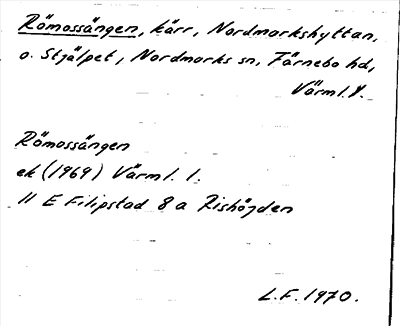 Römossängen, kärr, Nordmarkshyttan,
o. Stjälpet, Nordmarks sn, Färnebo hd,
Värml.
Römossängen
ek (1969) Värml. l.
11 E Filipstad 8 a Rishöjden
L.F. 1970.